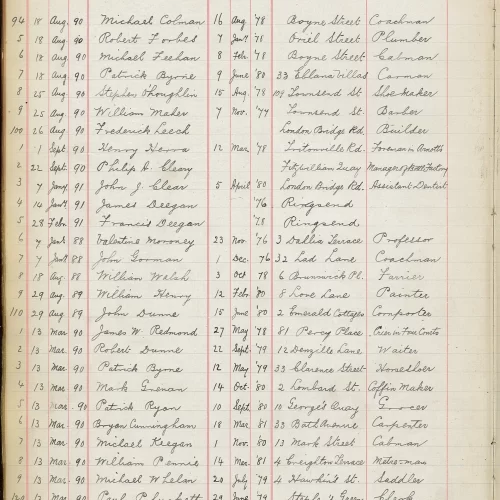 94 18 Aug. 90 Michael Colman 16 Aug '78 Boyne Street Coachman
5 18 Aug 90 Robert Forbes 7 Jany '78 Oriel Street Plumber
6 18 Aug. 90 Michael Feehan 8 Feby '78 Boyne Street Cabman
7 18 Aug. 90 Patrick Byrne 9 June '80 33 Ellana Villas Carman
8 25 Aug. 90 Stephen O'Loughlin 15 Aug. '78 Townsend St Shoemaker
9 25 Aug. 90 William Maher 7 Nov. '77 Townsend St Barber
100 26 Aug. 90 Frederick Leech London Bridge Rd. Builder
1 1 Sept 90 Henry 12 Mar '78 Foreman
2 22 Sept. 90 Philip A. Cleary Fitzwilliam Quay Manager
3 7 Jany. 91 John J. Clear 5 April '80 London Bridge Rd. Assistant Dentist
4 14 Jany 91 James Deegan '76 Ringsend
5 28 Feby 91 Francis Deegan '78 Ringsend
6 7 Jany 88 Valentine Moroney 23 Nov '76 3 Dallia Terrace Professor
7 7 Jany 88 John Gorman 1 Dec. '76 32 Lad Lane Coachman
8 18 Aug. 88 William Walsh 3 Oct '78 6 Brunswick Pl. Farrier
9 29 Aug. 89 William Henry 12 Feby '80 8 Love Lane Painter
110 29 Aug. 89 John Dunne 15 June '80 2 Emerald Cottages Compositor
1 13 Mar. 90 James W. Redmond 27 May '78 81 Percy Place Crier in Four Courts
2 13 Mar. 90 Robert Dunne 22 Sept. '79 12 Denzille Lane Waiter
3 13 Mar. 90 Patrick Byrne 12 May '79 33 Clarence Street Horseshoer
4 13 Mar. 90 Mark Grenan 14 Oct. '80 2 Lombard St. Coffin Maker
5 13 Mar. 90 Patrick Ryan 10 Sept. '80 10 George's Quay Grocer
6 13 Mar. 90 Bryan Cunningham 18 Mar '81 33 Bath Avenue Carpenter
7 13 Mar. 90 Michael Keegan 1 Nov. '80 13 Mark Street Cabman
8 13 Mar. 90 William Pennie 14 Mar. '81 4 Creighton Terrace
9 13 Mar. 90 Michael Whelan 20 July '79 4 Hawkins St. Saddler
120 13 Mar. 90 Paul Plunkett 29 June '79 Stephen's Green Clerk